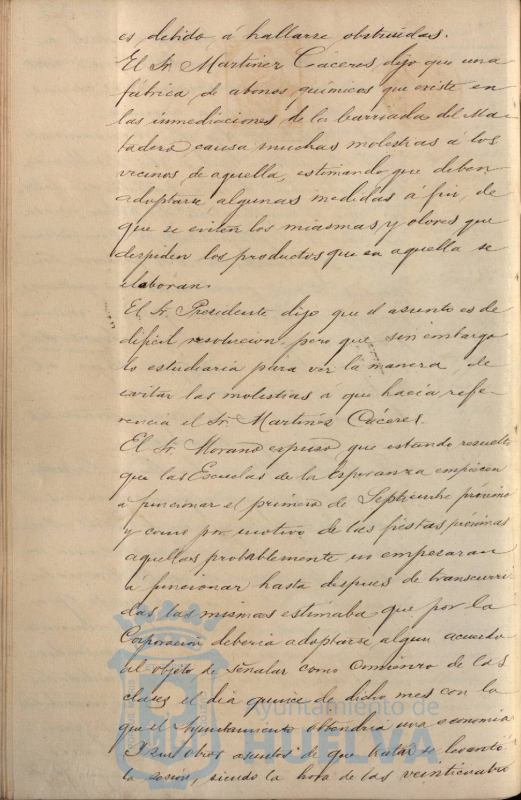 es debido á hallarse obstruidas.
El Sr. Martinez Cáceres dijo que una
fábrica de abonos químicos que existe en
las inmediaciones de la barriada del Ma-
tadero causa muchas molestias á los
vecinos de aquella, estimando que deben
adoptarse algunas medidas á fin de
que se eviten los miasmas y olores que
despiden los productos que en aquella se
elaboran.
El Sr. Presidente dijo que el asunto es de
dificil resolucion pero que sin embargo
lo estudiaria para ver la manera de
evitar las molestias á que hacía refe-
rencia el Sr. Martinez Cáceres.
El Sr. Morano expuso que estando resuelto
que las Escuelas de la Esperanza empiecen
á funcionar el primero de Septiembre próximo
y como por motivo de las fiestas próximas
aquellas probablemente no empezaran
á funcionar hasta despues de transcurri-
das las mismas estimaba que por la
Corporacion deberia adoptarse algun acuerdo
al objeto de señalar como comienzo de las
clases el dia quince de dicho mes con lo
que el Ayuntamiento obtendria una economia
Y sin otros asuntos de que tratar se levantó
la sesion, siendo la hora de las veinticuatro
Ayuntamiento de
HUELVA